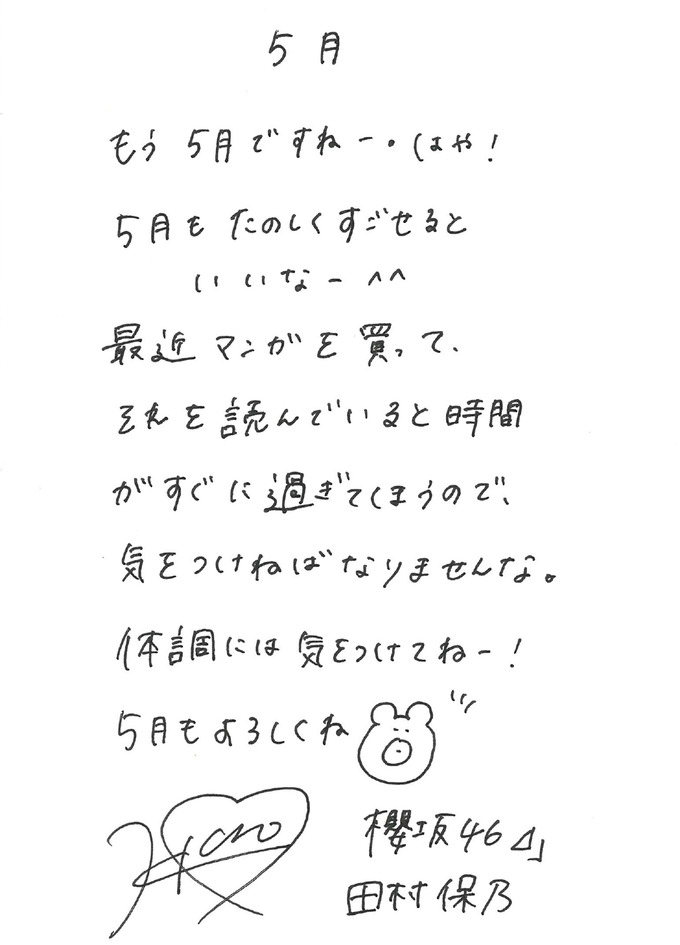 5月
もう 5月ですねー。はや!
5月も たのしくすごせると
いいなー ^^
最近 マンガを 買って、
それを読んでいると時間
がすぐに過ぎてしまうので、
気をつけねばなりませんな。
体調には 気をつけてね〜!
5月もよろしくね
Hono
櫻坂46
田村保乃